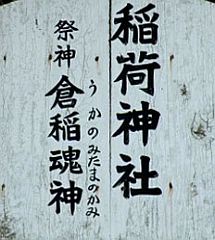 稲荷神社
祭神 倉稲魂神
うかのみたまのかみ